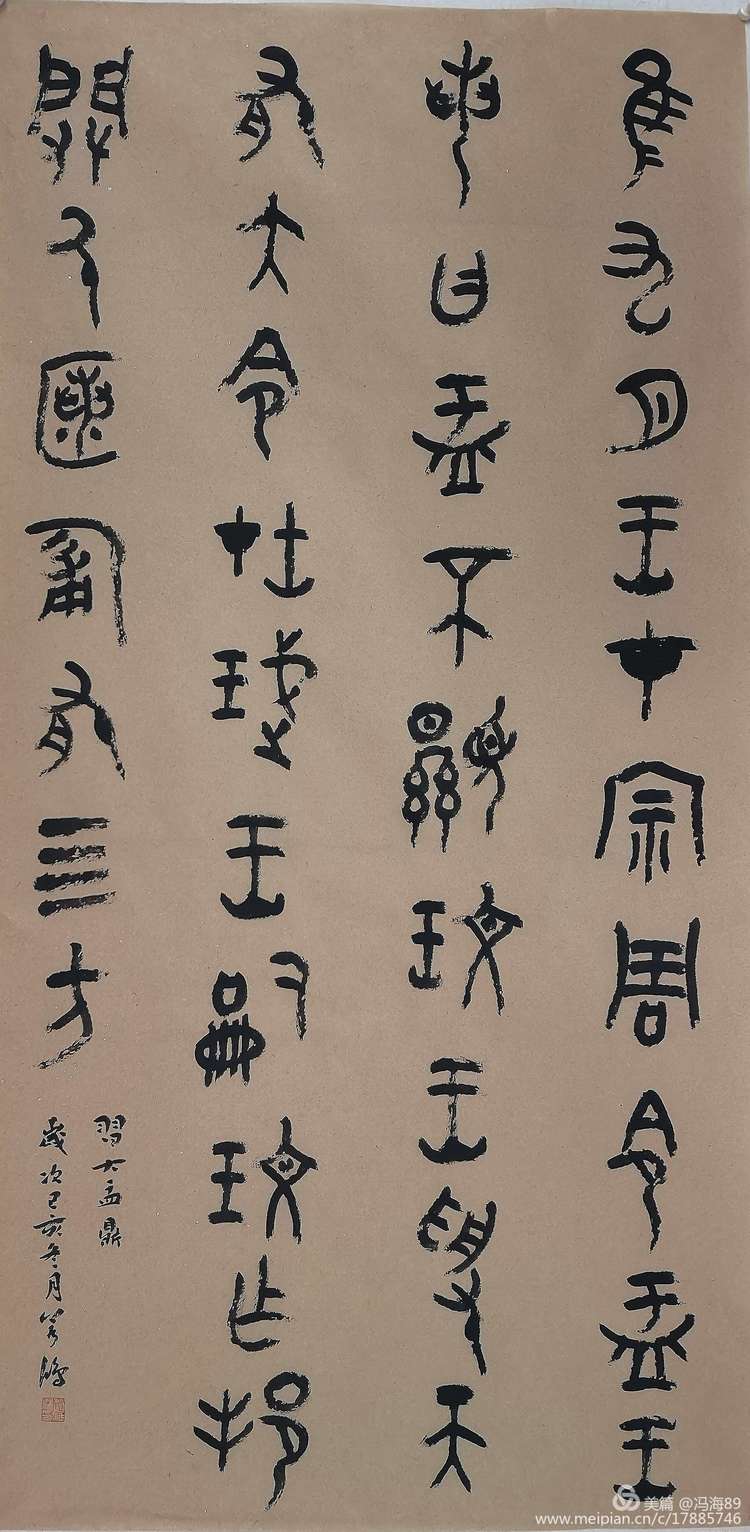 隹九月王才宗周令盂王
若曰盂不顯玟王受天
有大令在珷王嗣玟乍邦
闢氒匿匍有四方
習大盂鼎
歲次己亥冬月
美篇 @冯海89
www.meipian.cn/c/17885746